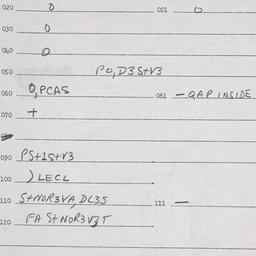 020 0 021 0
030 0
040 0
050 PO,D3St√3
060 0,PCAS 061 -QAP INSIDE
070 +
090 PS+1St√3
100 )LECL
110 S+NOR3VA,DL3S 111 -
120 FA S+NOR3√3T